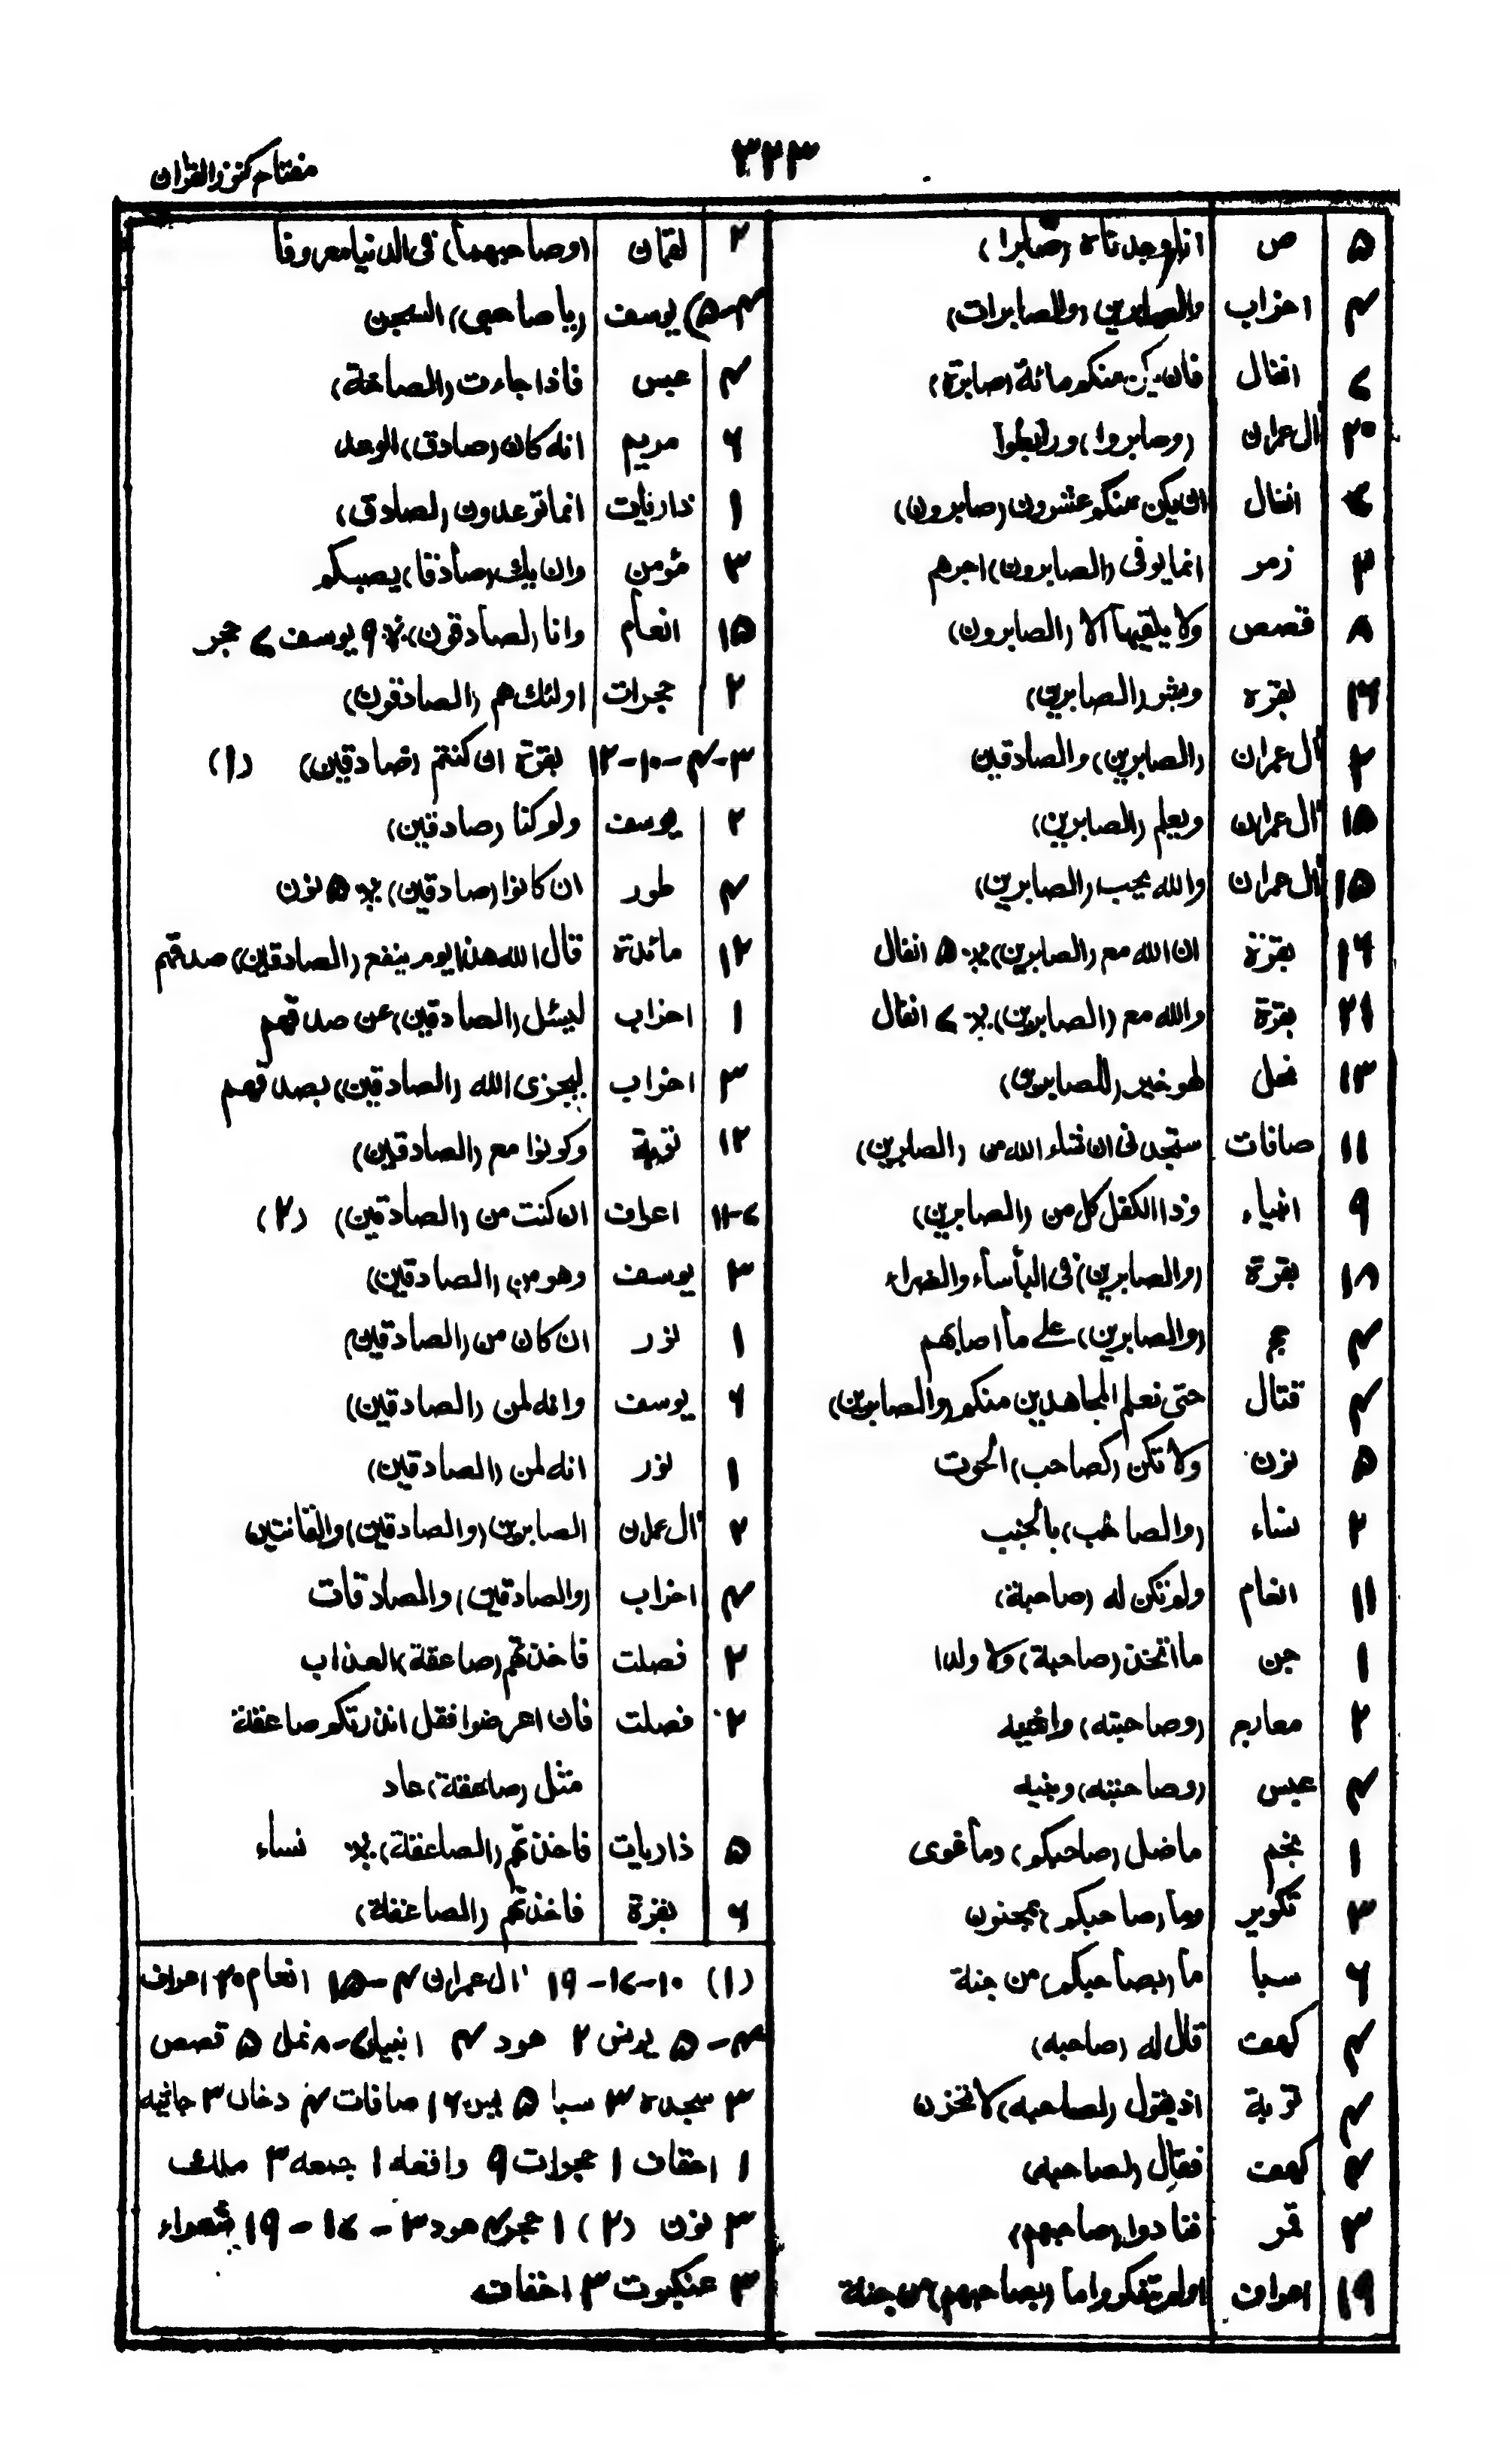 مفتاح كنوز القران
٣٢٣
۵ ص انا وجدناه (صابرا)
۴ احزاب والصابرين (والصابرات)
۷ انفال فان يكن منكم مائة (صابرة)
٢٠ اٰل عمران (وصابروا) ورابطوا
انفال ان يكن منكم عشرون (صابرون)
٢ زمر انما يوفى (الصابرون) اجرهم
٨ قصص ولا يلقيها الا (الصابرون)
بقرة وبشر (الصابرين)
٢ اٰل عمران (الصابرين) والصادقين
١۵ اٰل عمران ويعلم (الصابرين)
١۵ اٰل عمران والله يحب (الصابرين)
١۶ بقرة ان الله مع (الصابرين) ٪ ۵ انفال
٢١ بقرة والله مع (الصابرين) ٪ ۷ انفال
١٣ نحل لهو خير (للصابرين)
١١ صافات ستجدنى ان شاء الله من (الصابرين)
٩ انبياء وذا الكفل كل من (الصابرين)
١٨ بقرة (والصابرين) فى البأساء والضراء
۴ حج (والصابرين) على ما اصابهم
۴ قتال حتى نعلم المجاهدين منكم (والصابرين)
۵ نون ولا تكن (كصاحب) الحوت
٢ نساء (والصاحب) بالجنب
١١ انعام ولم تكن له (صاحبة)
١ جن ما اتخذ (صاحبة) ولا ولدا
٢ معارج (وصاحبته) واخيه
۴ عبس (وصاحبته) وبنيه
١ نجم ما ضل (صاحبكم) وما غوى
٣ تكوير وما (صاحبكم) بمجنون
۶ سبا ما (بصاحبكم) من جنة
۴ كهف قال له (صاحبه)
۴ توبة اذ يقول (لصاحبه) لا تحزن
كهف فقال (لصاحبه)
٣ قمر فنادوا (صاحبهم)
١٩ اعراف اولم يتفكروا ما (بصاحبهم) من جنة
٢ لقمان (وصاحبهما) فى الدنيا معروفا
۴-۵) يوسف (يا صاحبى) السجن
۴ عبس فاذا جاءت (الصاخة)
۶ مريم انه كان (صادق) الوعد
١ ذاريات انما توعدون (لصادق)
٣ مؤمن وان يك (صادقا) يصبكم
١۵ انعام وانا (لصادقون) ٪ ٩ يوسف ۷ حجر
٢ حجرات اولئك هم (الصادقون)
٣-۴-١٠-١٢ بقرة ان كنتم (صادقين) (١)
٢ يوسف ولو كنا (صادقين)
۴ طور ان كانوا (صادقين) ٪ ۵ نون
١٢ مائدة قال الله هذا يوم ينفع (الصادقين) صدقهم
١ احزاب ليسئل (الصادقين) عن صدقهم
٣ احزاب ليجزى الله (الصادقين) بصدقهم
١٢ توبة وكونوا مع (الصادقين)
۷-١١ اعراف ان كنت من (الصادقين) (٢)
٣ يوسف وهو من (الصادقين)
١ نور ان كان من (الصادقين)
۶ يوسف وانه لمن (الصادقين)
١ نور انه لمن (الصادقين)
٢ اٰل عمران الصابرين (والصادقين) والقانتين
۴ احزاب (والصادقين) والصادقات
٢ فصلت فاخذتهم (صاعقة) العذاب
٢ فصلت فان اعرضوا فقل انذرتكم صاعقة
مثل (صاعقة) عاد
۵ ذاريات فاخذتهم (الصاعقة) ٪ نساء
۶ بقرة فاخذتهم (الصاعقة)
(١) ١٠-١۷-١٩ اٰل عمران ۴-١۵ انعام ٢٠ اعراف
۴-۵ يونس ٢ هود ۴ انبياء ۷-٨ نمل ۵ قصص
٣ سجده ٣ سبا ۵ يس ١۶ صافات ۴ دخان ٣ جاثيه
١ احقاف ١ حجرات ٩ واقعه ١ جمعه ٣ ملك
٣ نون (٢) ١ حجر ۴ هود ٣-١۷-١٩ شعراء
٣ عنكبوت ٣ احقاف